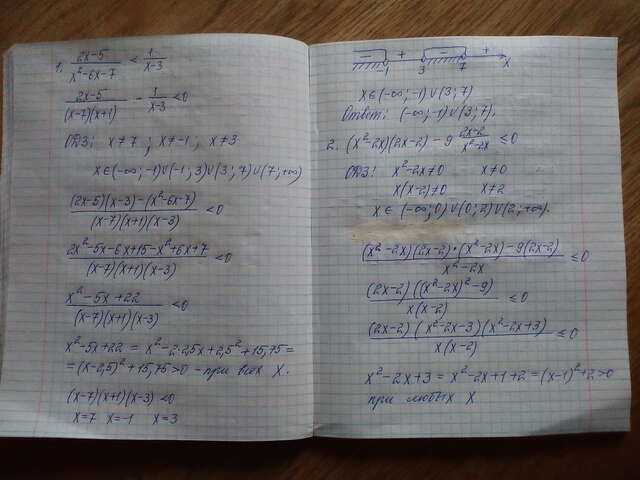 1. (2x-5)/(x²-6x-7) < 1/(x-3)
(2x-5)/((x-7)(x+1)) - 1/(x-3) < 0
ОДЗ: x≠7 ; x≠-1 ; x≠3
x∈(-∞;-1)∪(-1;3)∪(3;7)∪(7;+∞)
((2x-5)(x-3)-(x²-6x-7))/((x-7)(x+1)(x-3)) < 0
(2x²-5x-6x+15-x²+6x+7)/((x-7)(x+1)(x-3)) < 0
(x²-5x+22)/((x-7)(x+1)(x-3)) < 0
x²-5x+22 = x²-2·2,5x+2,5²+15,75=
=(x-2,5)²+15,75>0 - при всех x.
(x-7)(x+1)(x-3)<0
x=7 x=-1 x=3
- + - +
-1 3 7 x
x∈(-∞;-1)∪(3;7)
Ответ: (-∞;-1)∪(3;7).
2. (x²-2x)(2x-2) - 9 (2x-2)/(x²-2x) ≤0
ОДЗ: x²-2x≠0 x≠0
x(x-2)≠0 x≠2
x∈(-∞;0)∪(0;2)∪(2;+∞).
((x²-2x)(2x-2)·(x²-2x)-9(2x-2))/(x²-2x) ≤0
((2x-2)((x²-2x)²-9))/(x(x-2)) ≤0
((2x-2)(x²-2x-3)(x²-2x+3))/(x(x-2)) ≤0
x²-2x+3 = x²-2x+1+2=(x-1)²+2>0
при любых x